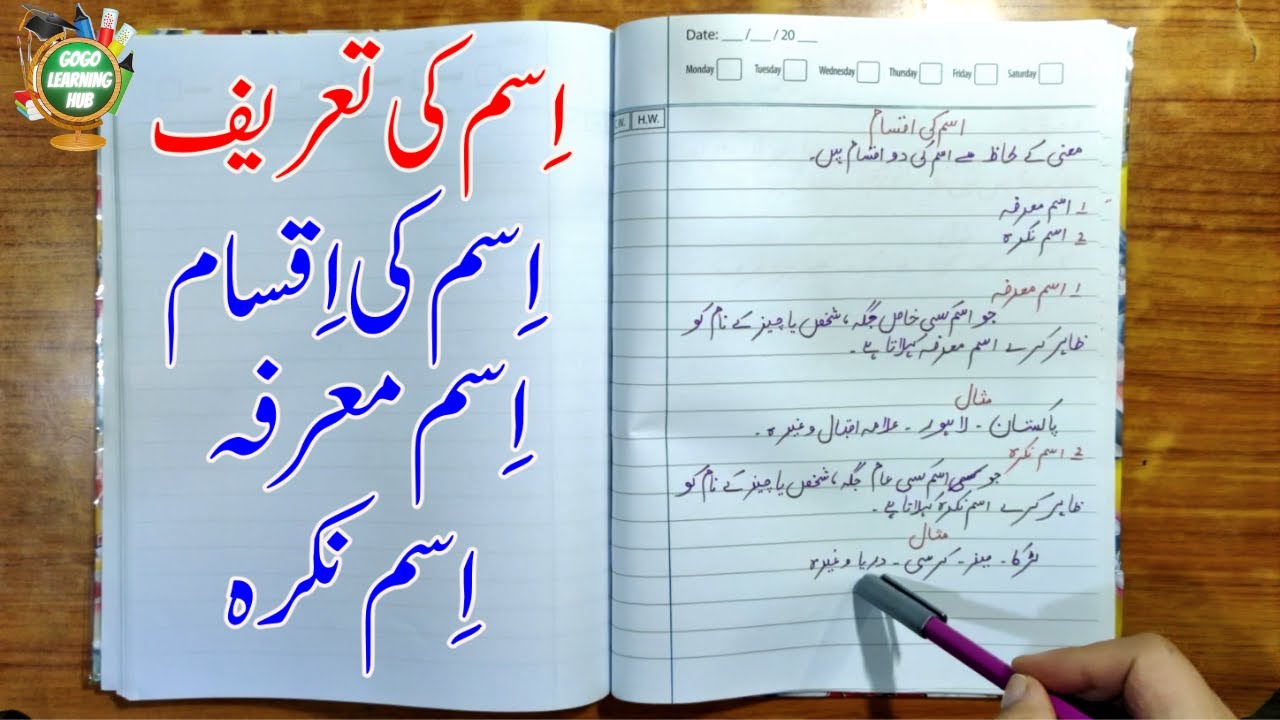 GOGO
LEARNING
HUB
اِسم کی تعریف
اِسم کی اِقسام
اِسم معرفہ
اِسم نکرہ
Date: ___ /___ / 20 ___
Monday Tuesday Wednesday Thursday Friday Saturday
H.W.
اسم کی اقسام
معنی کے لحاظ سے اسم کی دو اقسام ہیں۔
1 اسم معرفہ
2 اسم نکرہ
1 اسم معرفہ
جو اسم کسی خاص جگہ، شخص یا چیز کے نام کو
ظاہر کرے اسم معرفہ کہلاتا ہے۔
مثال
پاکستان - لاہور - علامہ اقبال وغیرہ۔
2 اسم نکرہ
جو اسم کسی عام جگہ، شخص یا چیز کے نام کو
ظاہر کرے اسم نکرہ کہلاتا ہے۔
مثال
لڑکا - میز - کرسی - دریا وغیرہ